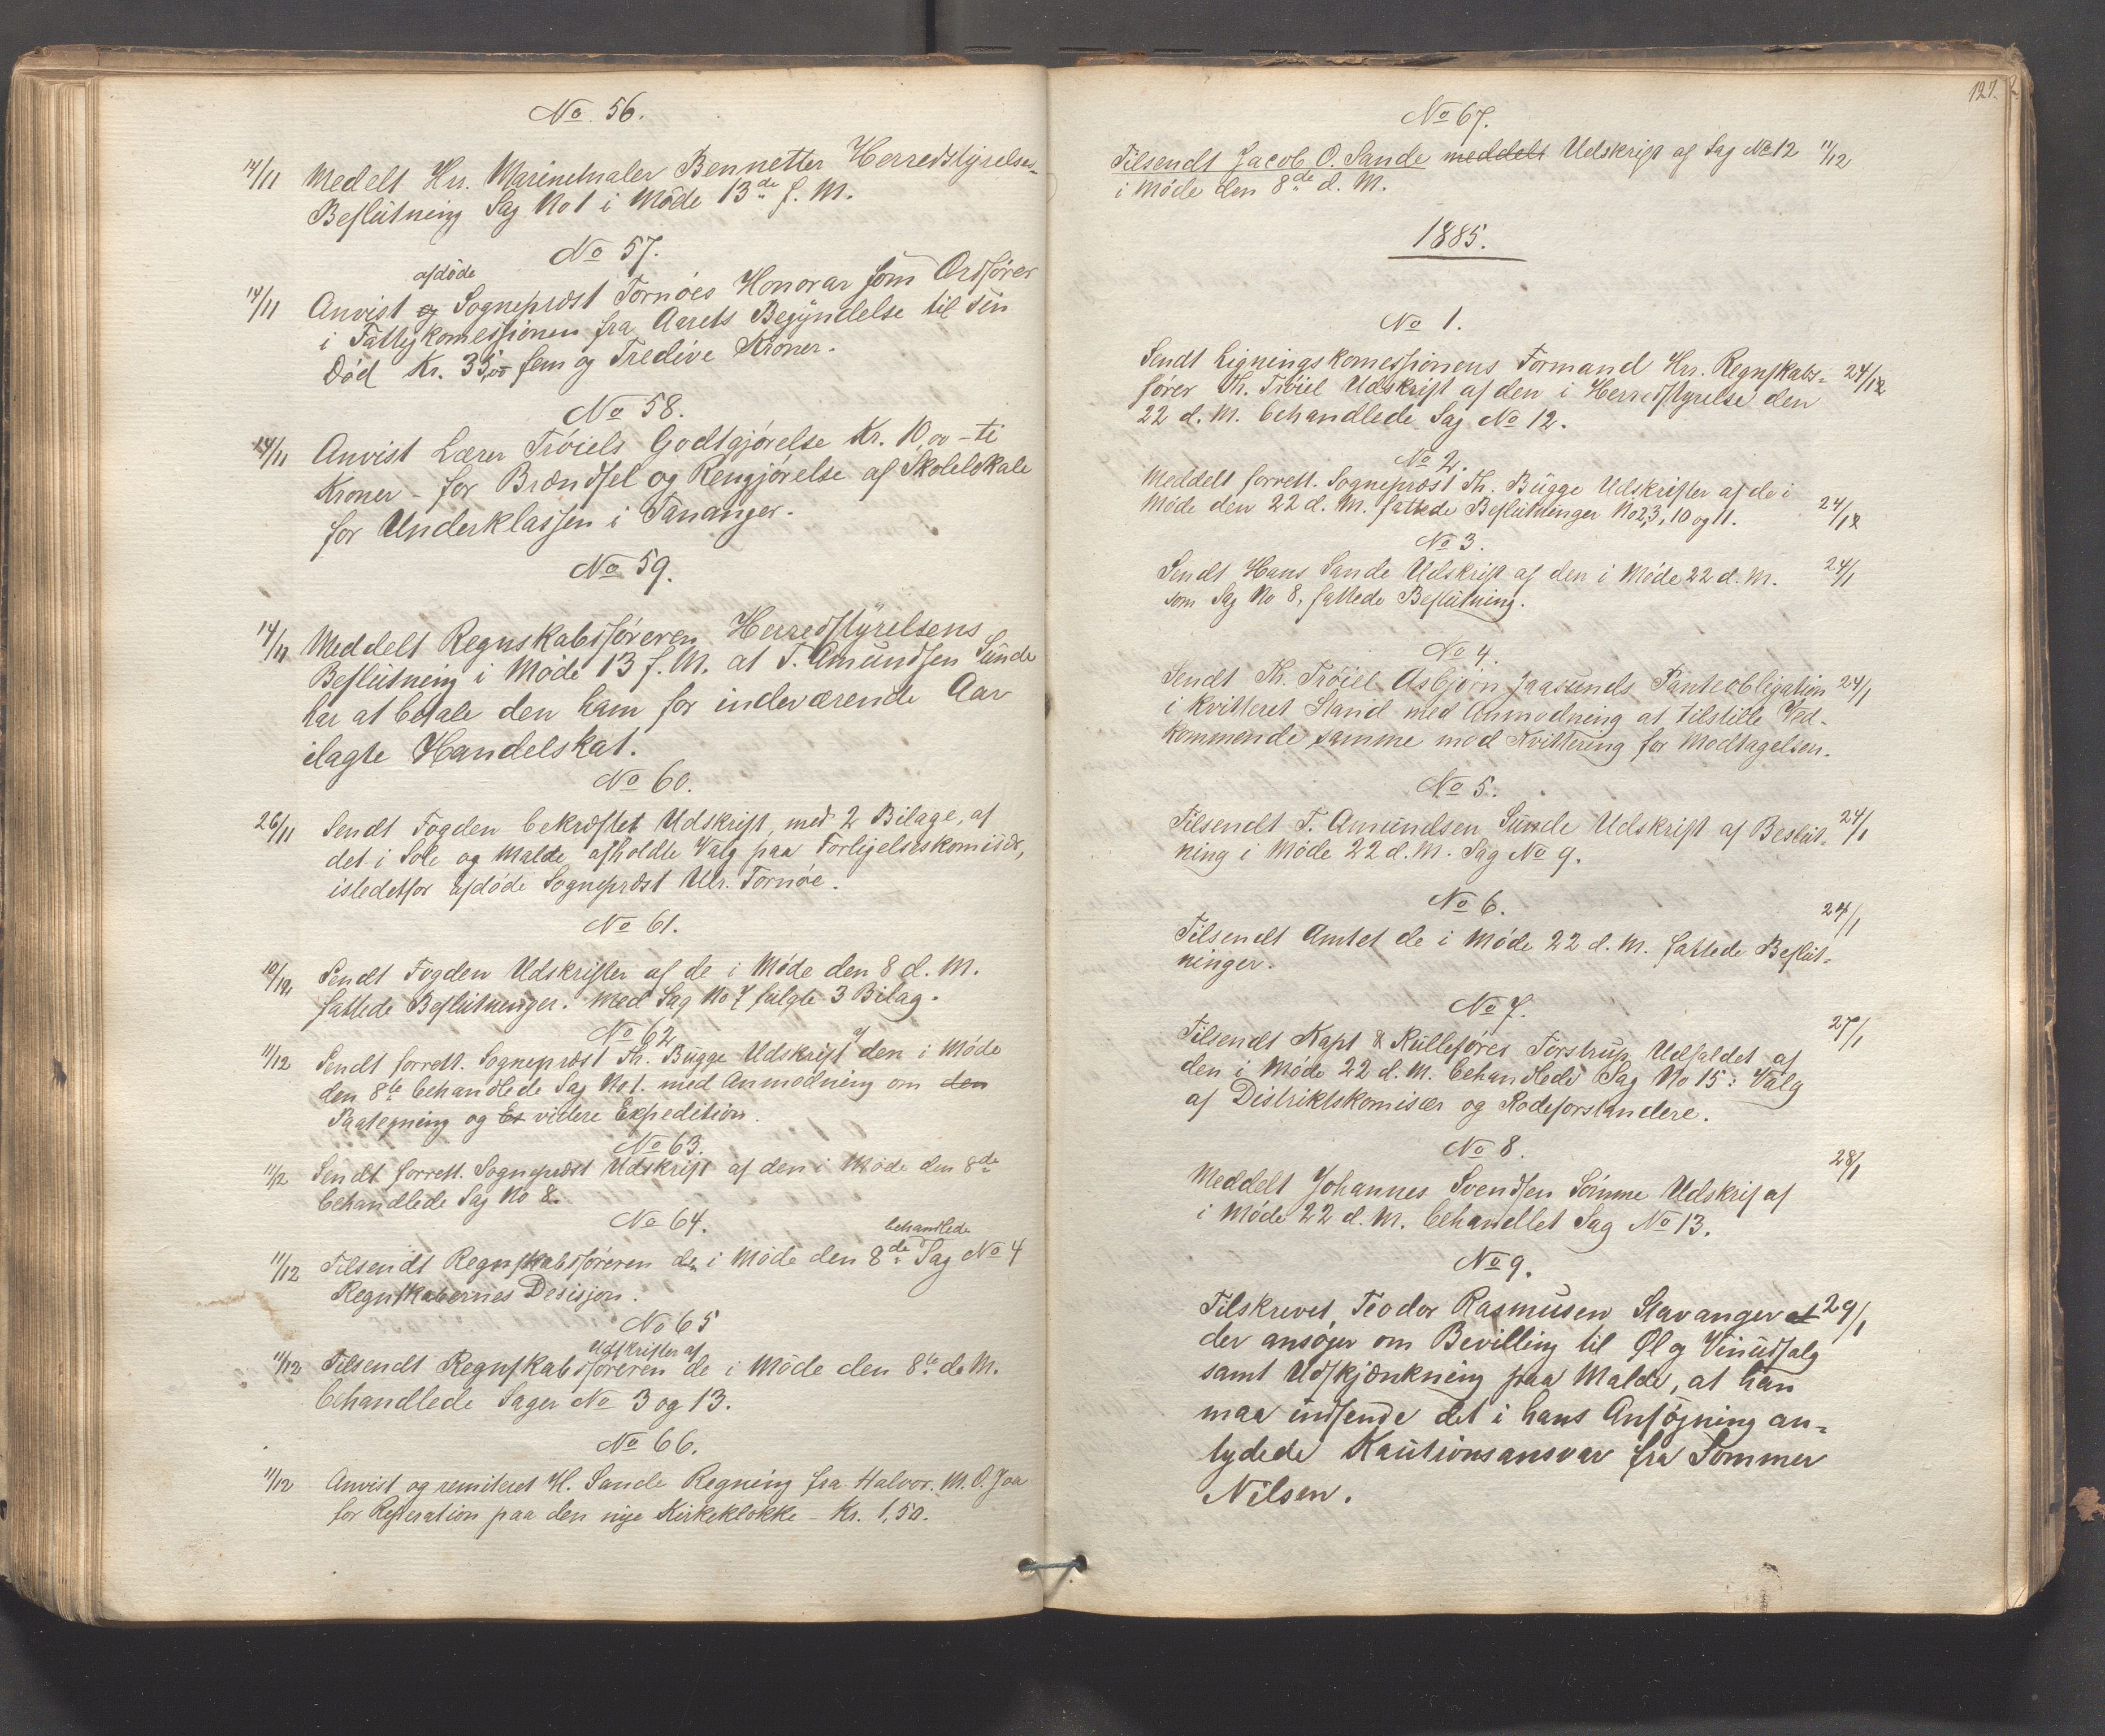 No. 56.
14/11 Medelt Hr. Marinemaler Bennetter Herredstyrelses-
Beslutning Sag No 1 i Møde 13de f. M.
No 57.
afdøde
14/11 Anvist og Sogneprest Tornøes Honorar som Ordfører
i Fattigkomessionen fra Aarets Begyndelse til sin
Død Kr. 35,00 fem og Tredive Kroner.
No 58.
14/11 Anvist Lærer Trøiels Godtgjørelse Kr. 10,00 - ti
Kroner - for Brændsel og Rengjørelse af Skolelokale
for Underklassen i Tananger.
No 59.
14/11 Meddelt Regnskabsføreren Herredstyrelsens
Beslutning i Møde 13 f. M. at T. Amundsen Sunde
har at betale den ham for indeværende Aar
ilagte Handelskat.
No 60.
26/11 Sendt Fogden bekræftet Udskrift, med 2 Bilage, af
det i Sole og Malde afholdte Valg paa Forligelseskomisær,
istedetfor afdøde Sogneprest Ulr. Tornøe.
No 61.
10/12 Sendt Fogden Udskrifter af de i Møde den 8 d. M.
fattede Beslutninger. Med Sag No 7 fulgte 3 Bilag.
No 62
af
11/12 Sendt forrett. Sogneprest Th. Bugge Udskrift den i Møde
den 8de behandlede Sag No 1. med Anmodning om den
Paategning og Ex videre Expedition.
No 63.
11/12 Sendt forrett. Sogneprest Udskrift af den i Møde den 8de
behandlede Sag No 8.
No 64.
behandlede
11/12 Tilsendt Regnskabsføreren den i Møde den 8de Sag No 4
Regnskabernes Desisjon.
No 65
Udskrifter af
11/12 Tilsendt Regnskabsføreren de i Møde den 8de d. M.
behandlede Sager No 3 og 13.
No 66.
11/12 Anvist og remiteret H. Sande Regning fra Halvor. M. O. Joa
for Reperation paa den nye Kirkeklokke - Kr. 1,50.
127.
No 67.
Tilsendt Jacob O. Sande meddelt Udskrift af Sag No 12 11/12
i Møde den 8de d. M.
1885.
No 1.
Sendt Ligningskomessionens Formand Hr. Regnskabs- 24/12
fører Th. Trøiel Udskrift af den i Herredstyrelse den
22 d. M. behandlede Sag No 12.
No 2.
Meddelt forrett. Sogneprest Th. Bugge Udskrifter af de i
Møde den 22 d. M. fattede Beslutninger No 2,3, 10 og 11. 24/12
No 3.
Sendt Hans Sande Udskrift af den i Møde 22 d. M. 24/1
som Sag No 8, fattede Beslutning.
No 4.
Sendt Th. Trøiel Asbjørn Jaasunds Panteobligation 24/1
i kvitteret Stand med Anmodning at tilstille Ved-
kommende samme mod Kvittering for Modtagelsen.
No 5.
Tilsendt T. Amundsen Sunde Udskrift af Beslut- 24/1
ning i Møde 22 d. M. Sag No 9.
No 6.
Tilsendt Amtet de i Møde 22 d. M. fattede Beslut- 24/1
ninger.
No 7.
Tilsendt Kapt & Rulleføres Torstrup Udfaldet af 27/1
den i Møde 22 d. M. behandlede Sag No 15: Valg
af Distriktskomisær og Rodeforstandere.
No 8.
Meddelt Johannes Svendsen Sømme Udskrif af 28/1
i Møde 22 d. M. behandlet Sag No 13.
No 9.
Tilskrevet Teodor Rasmusen Stavanger at 29/1
der ansøger om Bevilling til Øl og Vinudsalg
samt Udskjænkning paa Malde, at han
maa indsende det i hans Ansøgning an-
tydede Kautionsansvar fra Sommer
Nilsen.